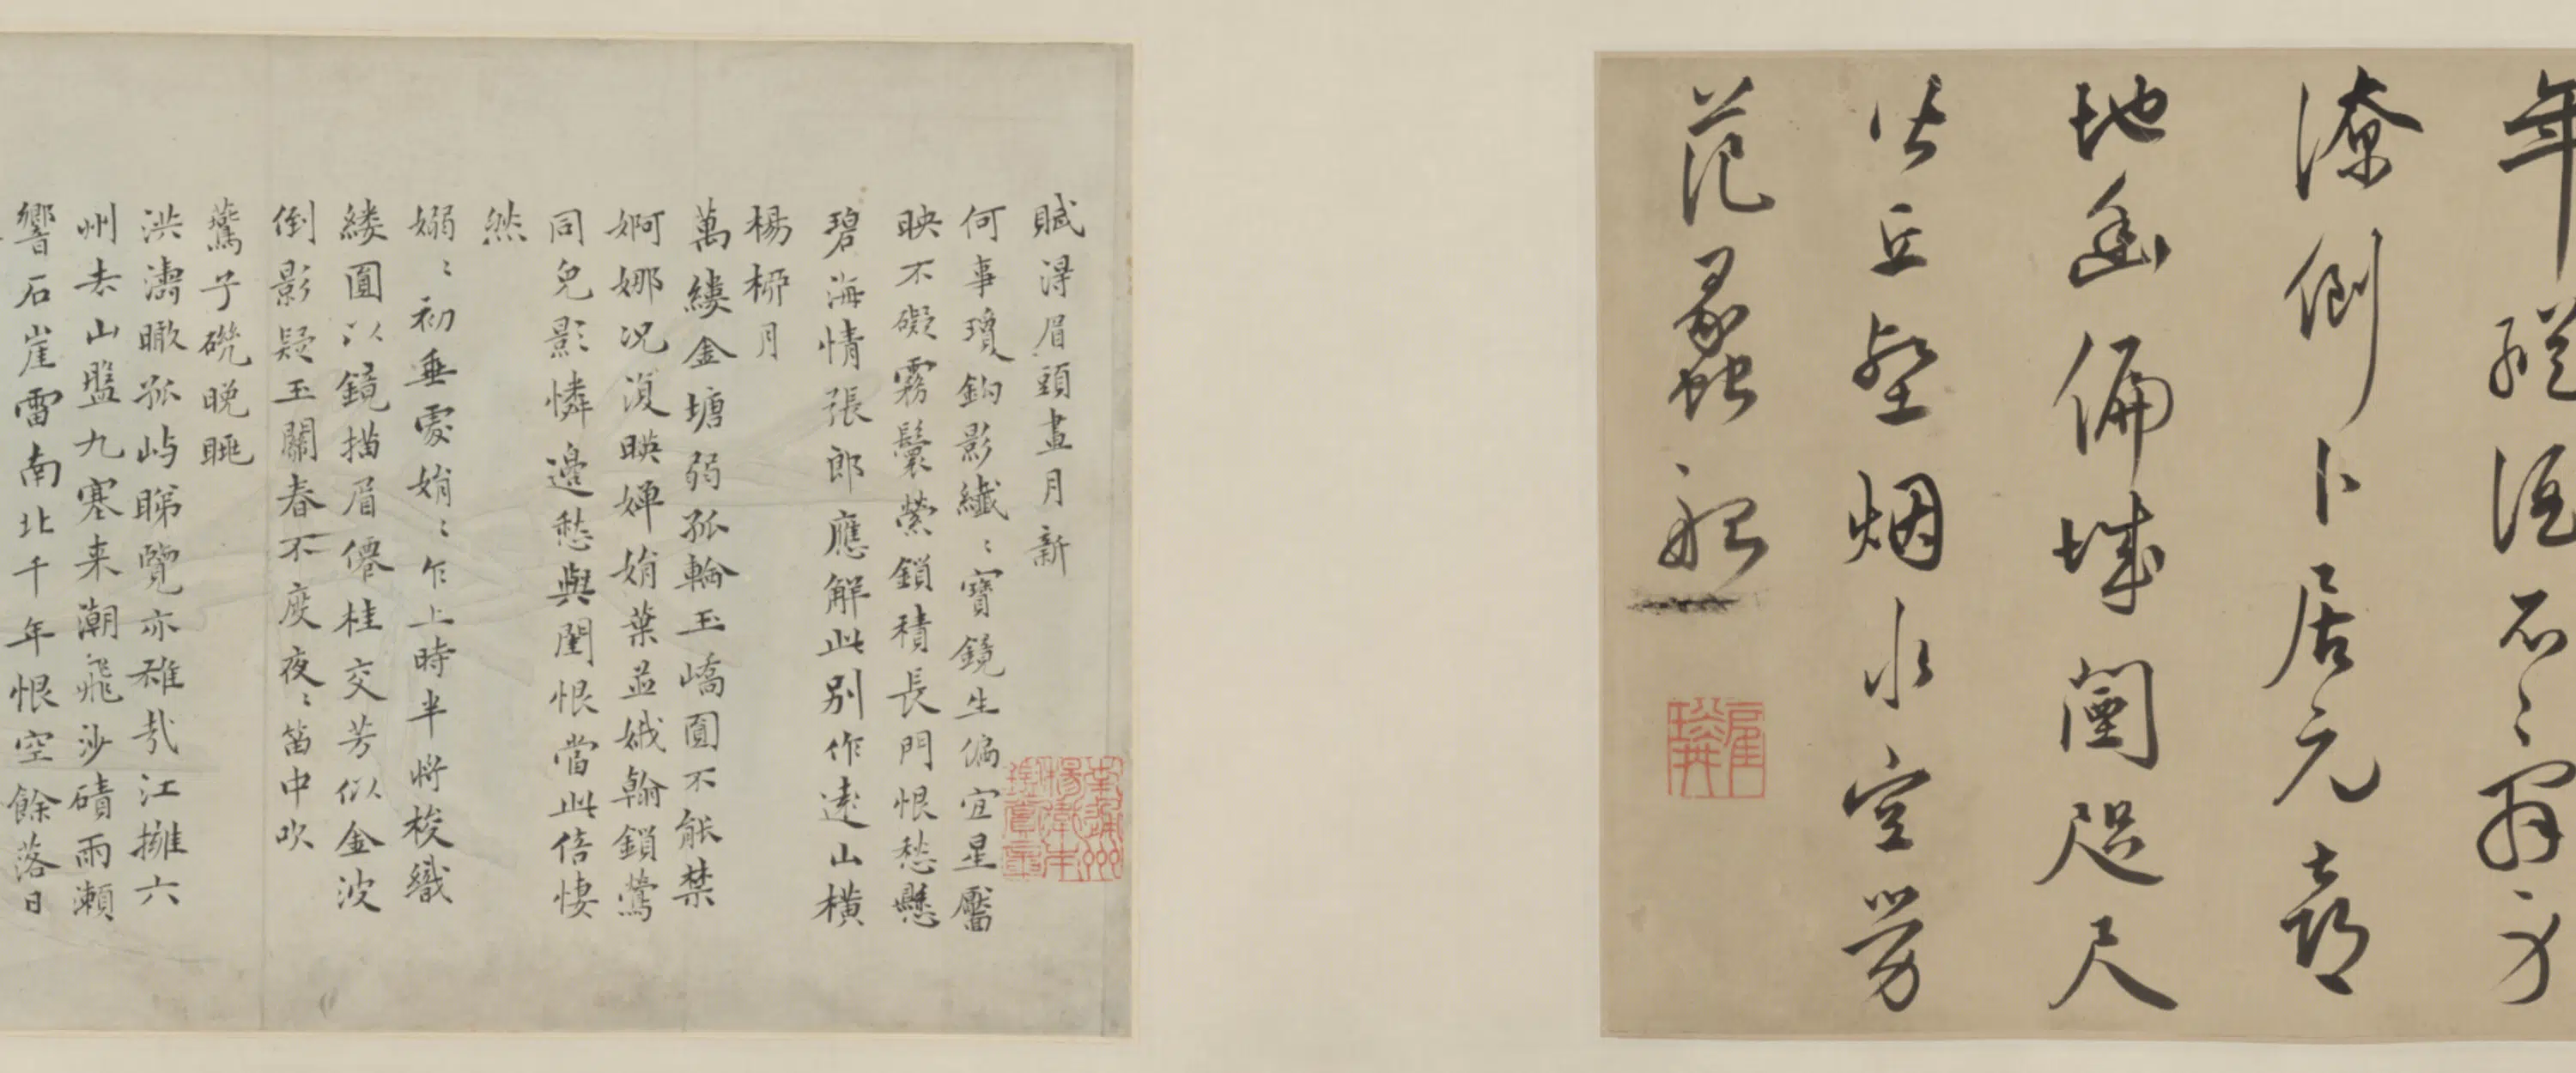 年
潦倒卜居元喜
地幽偏城闉咫尺
皆丘壑烟水空勞
范蠡船
賦得眉頭畫月新
何事瓊鈎影纖〻寶鏡生偏宜星靨
映不礙霧鬟縈鎖積長門恨愁懸
碧海情張郎應解此別作遠山橫
楊柳月
萬縷金塘弱孤輪玉嶠圓不能禁
婀娜况復暎嬋娟葉並娥翰鎖鶯
同兒影憐邊愁與閨恨當此倍悽
然
嫋〻初垂處娟〻乍上時半將梭織
縷圓以鏡描眉僊桂交芳似金波
倒影疑玉關春不度夜〻笛中吹
燕子磯晚眺
洪濤瞰孤屿睇覽亦雄哉江擁六
州去山盤九塞来潮飛沙磧雨瀨
響石崖雷南北千年恨空餘落日